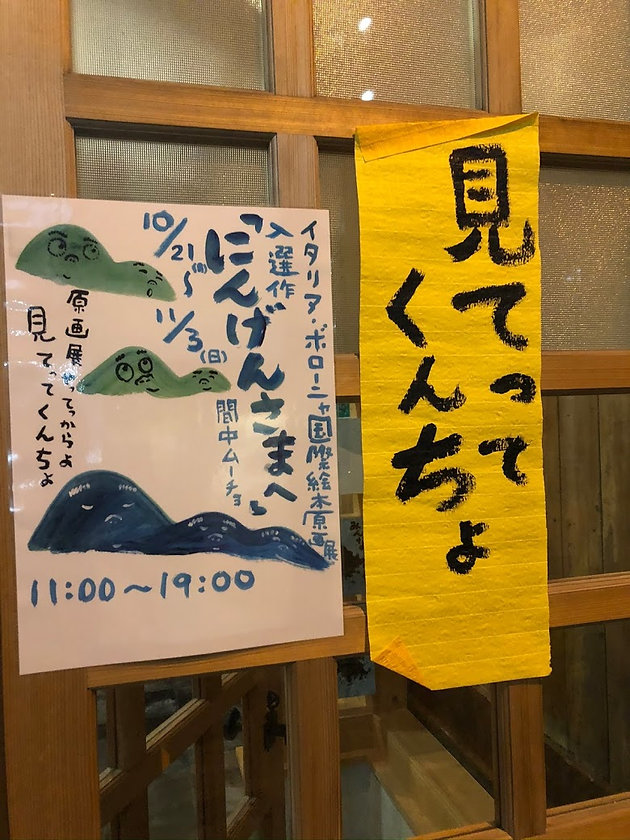 イタリア・ボローニャ国際絵本原画展
入選作
「にんげんさまへ」
間中ムーチョ
10/21(月)
〜
11/3(日)
原画展やってっからよ
見てってくんちょ
11:00〜19:00
見てって
くんちょ